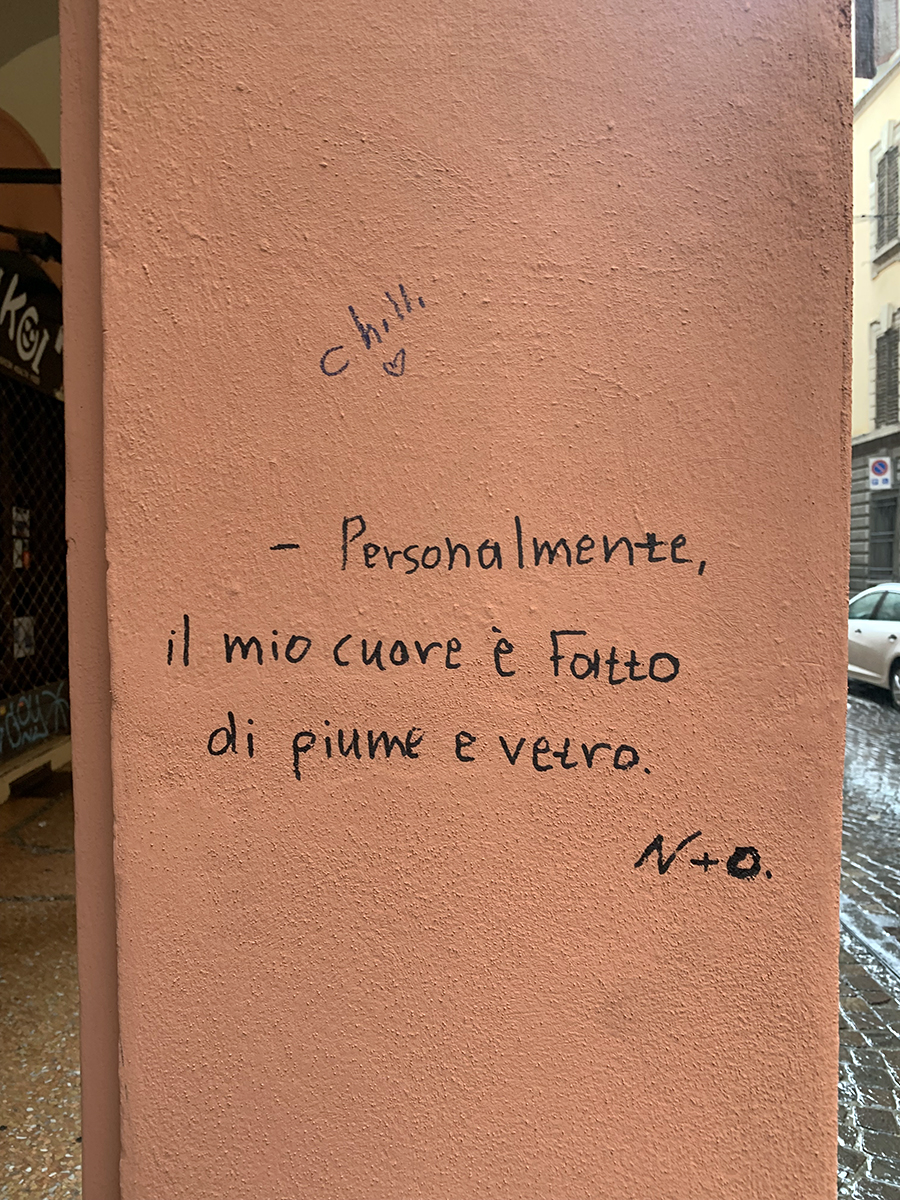 chilli
- Personalmente,
il mio cuore è Fatto
di piume e vetro.
N+O.